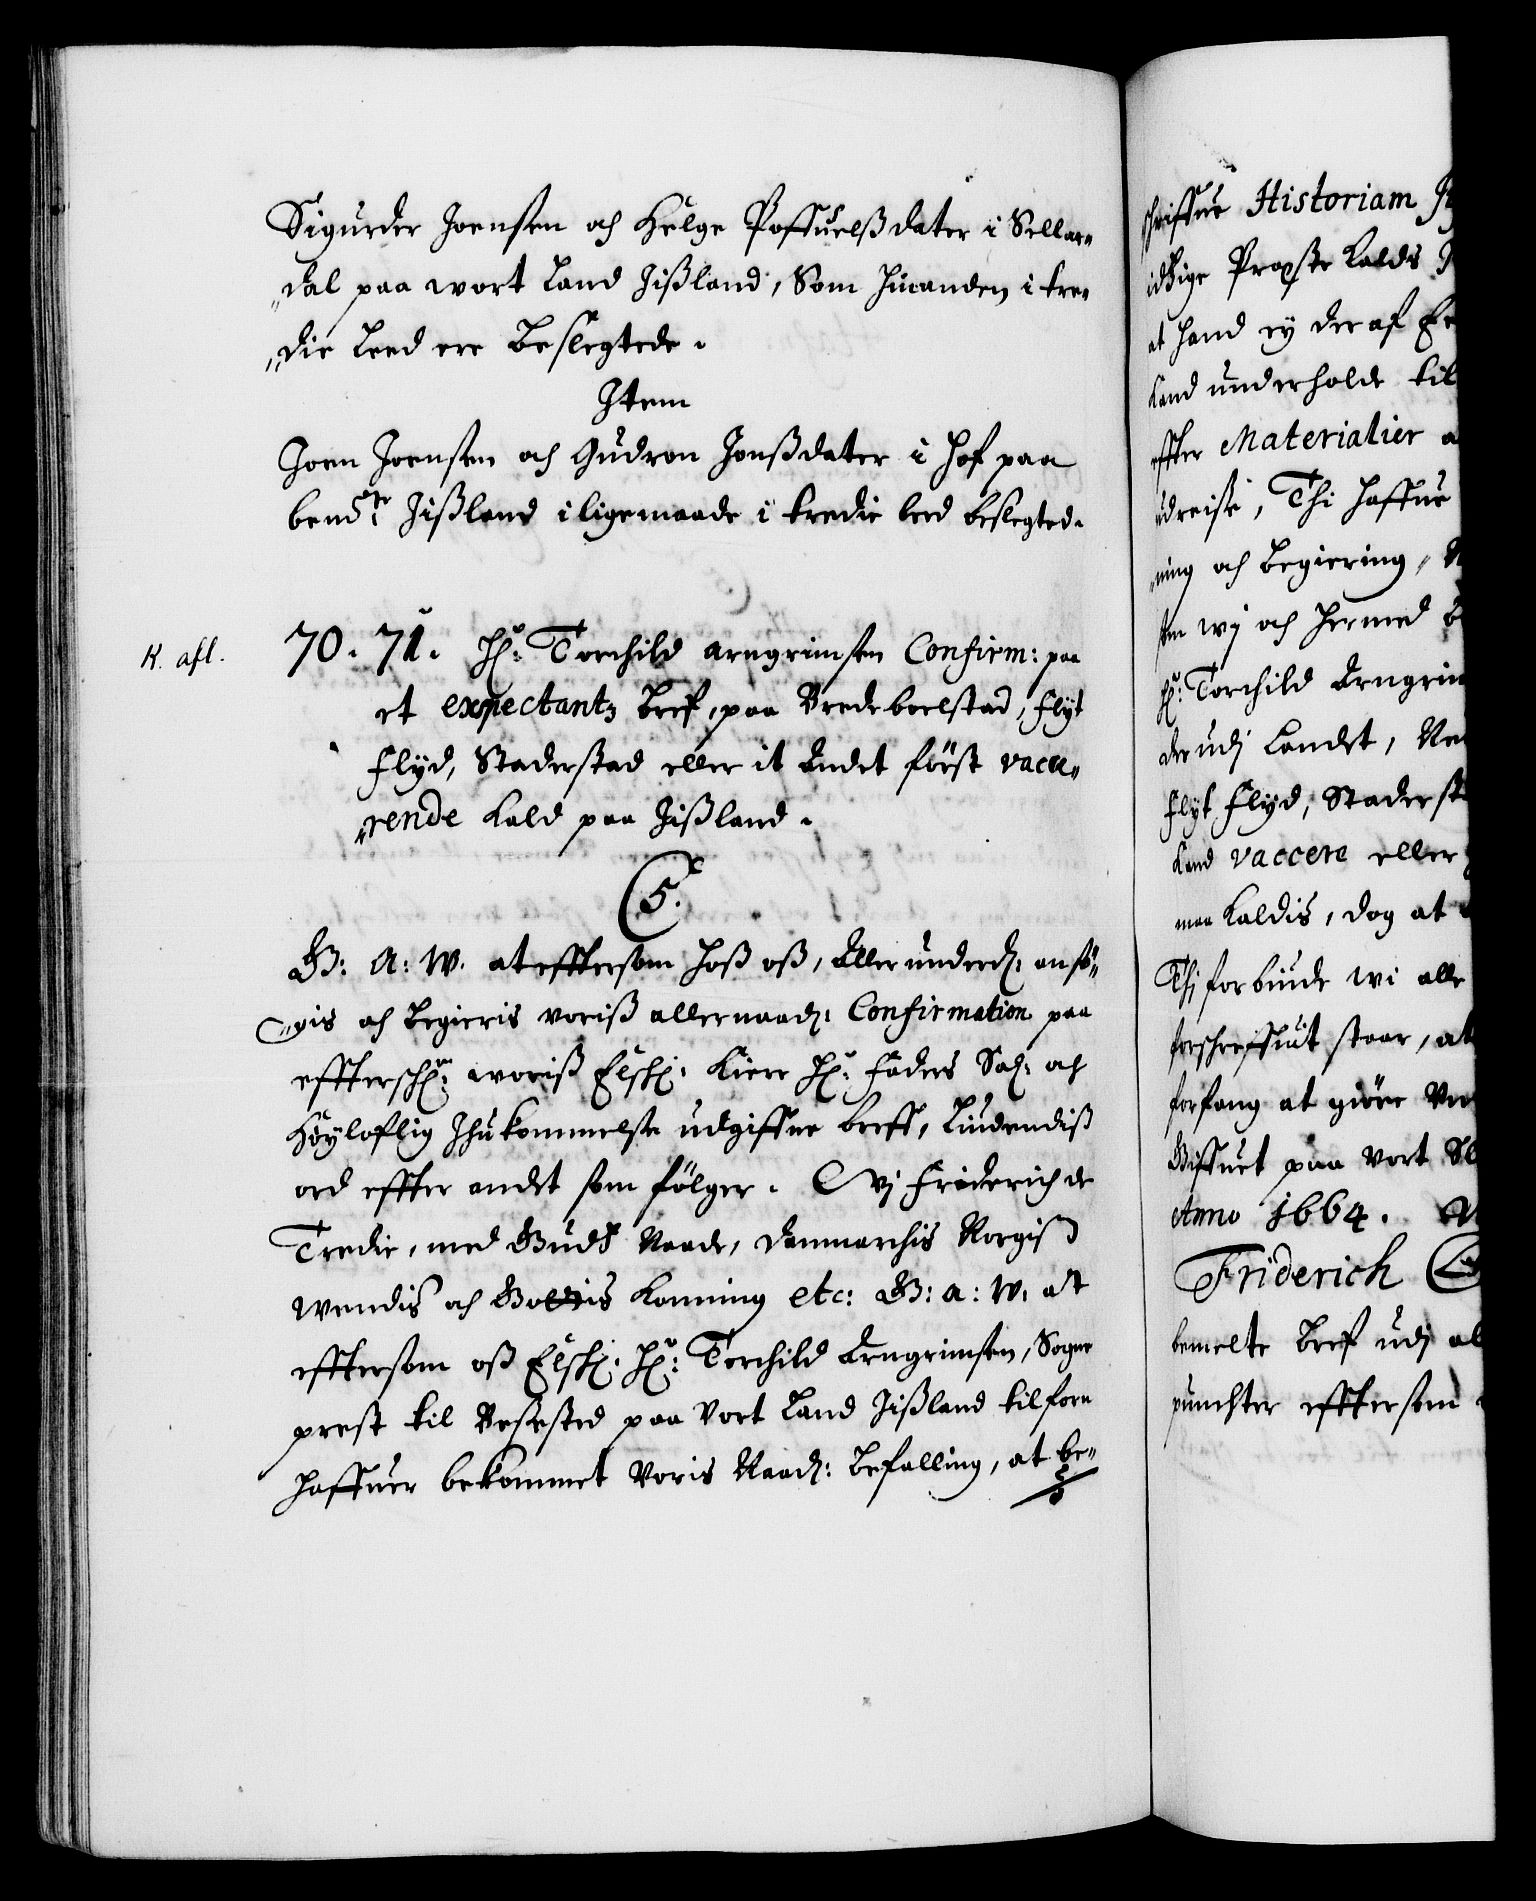 Sigurder Joensen och Helge Possuelß dater i Sellar„
„dal paa wort Land Jißland, Som hinanden i tre„
„die Leed ere Beslegtede.
Item
Joen Joensen och Gudron Jonßdater i Hof paa
bemte: Jißland i ligemaade i tredie leed beslegted.
K. afl.
70. 71. Hr: Torchild Arngrimsen Confirm: paa
et expectantz Bref, paa Bredeboelstad, Flyt
Flyd, Staderstad eller it Andet först vace„
„rende Kald paa Jißland.
C5.
G: A: W. at efftersom hoß oß, Aller underd: ansö„
„gis och begieris voriß allernaad: Confirmation paa
effterschne: woriß Elsk: Kiere Hr: Faders Sal: och
Höylofflig Ihukommelse udgiffne breff, liudendiß
ord effter andet som fölger. Wj Friderich de
Tredie, med Guds Naade, Danmarchis Norgis
Wendis och Gottis Konning etc: G: a: W: at
efftersom oß Elsk: Hr: Torchild Arngrimsen, Sogne
prest til Besested paa Vort Land Jißland tilforn
haffuer bekommet Voris Naad: befalling, at be„
schriffue Historiam
idtzige Propste Kalds
at hand ey der af
Land underholde til
effter Materialier
udreise, Thi haffue
„ning och begiering,
som wj och hermed
Hr: Torchild Arngrim
der udj Landet,
Flyt Flyd, Staderst
Kand vaccere eller
maa Kaldis, dog at
Thj forbiude wi alle
forschreffuit staar, at
forfang at giöre
Giffuet paa Vort Sl
Anno 1664.
Friderich
bemelte bref udj al
puncter efftersom